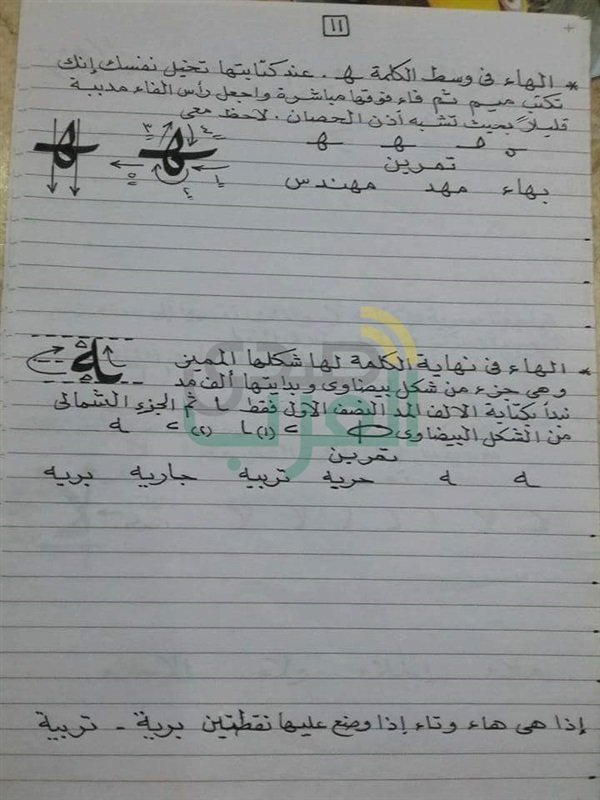 ١١
* الهاء فى وسط الكلمة ـهـ . عند كتابتها تخيل نفسك إنك
تكتب ميم ثم فاء فوقها مباشرة واجعل رأس الفاء مدببة
قليلاً بحيث تشبه أذن الحصان . لاحظ معى
تمرين
بهاء مهد مهندس
* الهاء فى نهاية الكلمة لها شكلها المميز
وهى جزء من شكل بيضاوى وبدايتها ألف مد
نبدأ بكتابة الالف المد النصف الأول فقط ثم الجزء الشمالى
من الشكل البيضاوى (١) (٢) ـه
تمرين
ـه ـه حريه تربيه جاريه بريه
صدى
العرب
إذا هى هاء وتاء إذا وضع عليها نقطتين برية - تربية